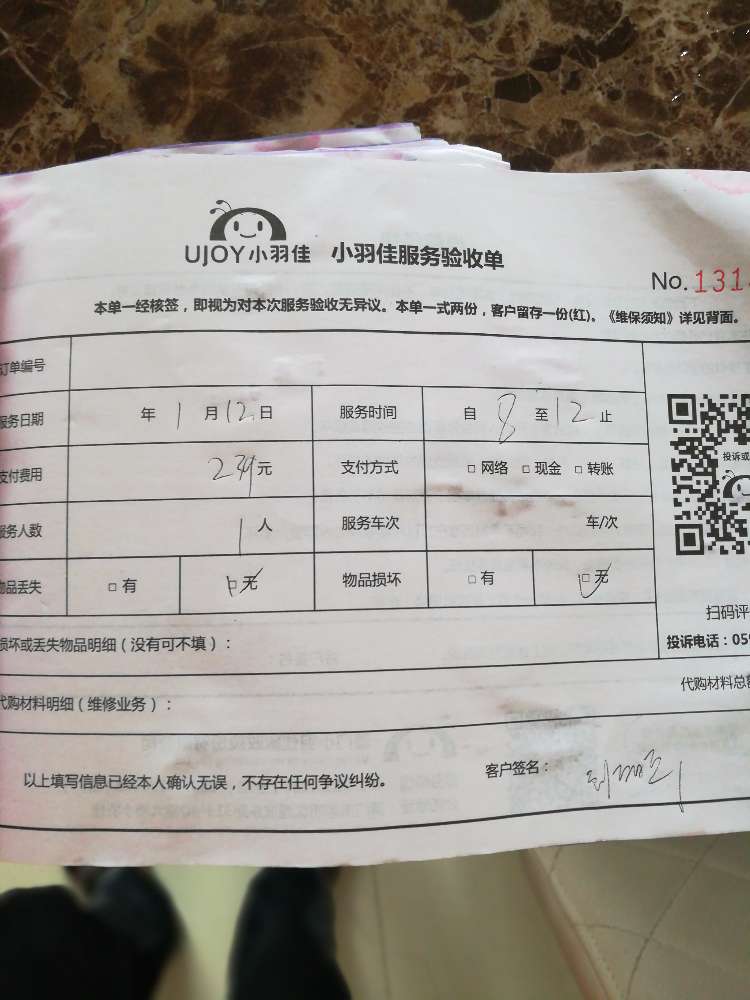 UJOY小羽佳 小羽佳服务验收单
No.131
本单一经核签，即视为对本次服务验收无异议。本单一式两份，客户留存一份(红)。《维保须知》详见背面。
订单编号
服务日期 年 1 月 12 日 服务时间 自 8 至 12 止
支付费用 元 支付方式 □ 网络 □ 现金 □ 转账
服务人数 1 人 服务车次 车/次
物品丢失 □ 有 □ 无 物品损坏 □ 有 □ 无
投诉或
扫码评
损坏或丢失物品明细（没有可不填）：
投诉电话：059
代购材料明细（维修业务）：
代购材料总额
以上填写信息已经本人确认无误，不存在任何争议纠纷。
客户签名：